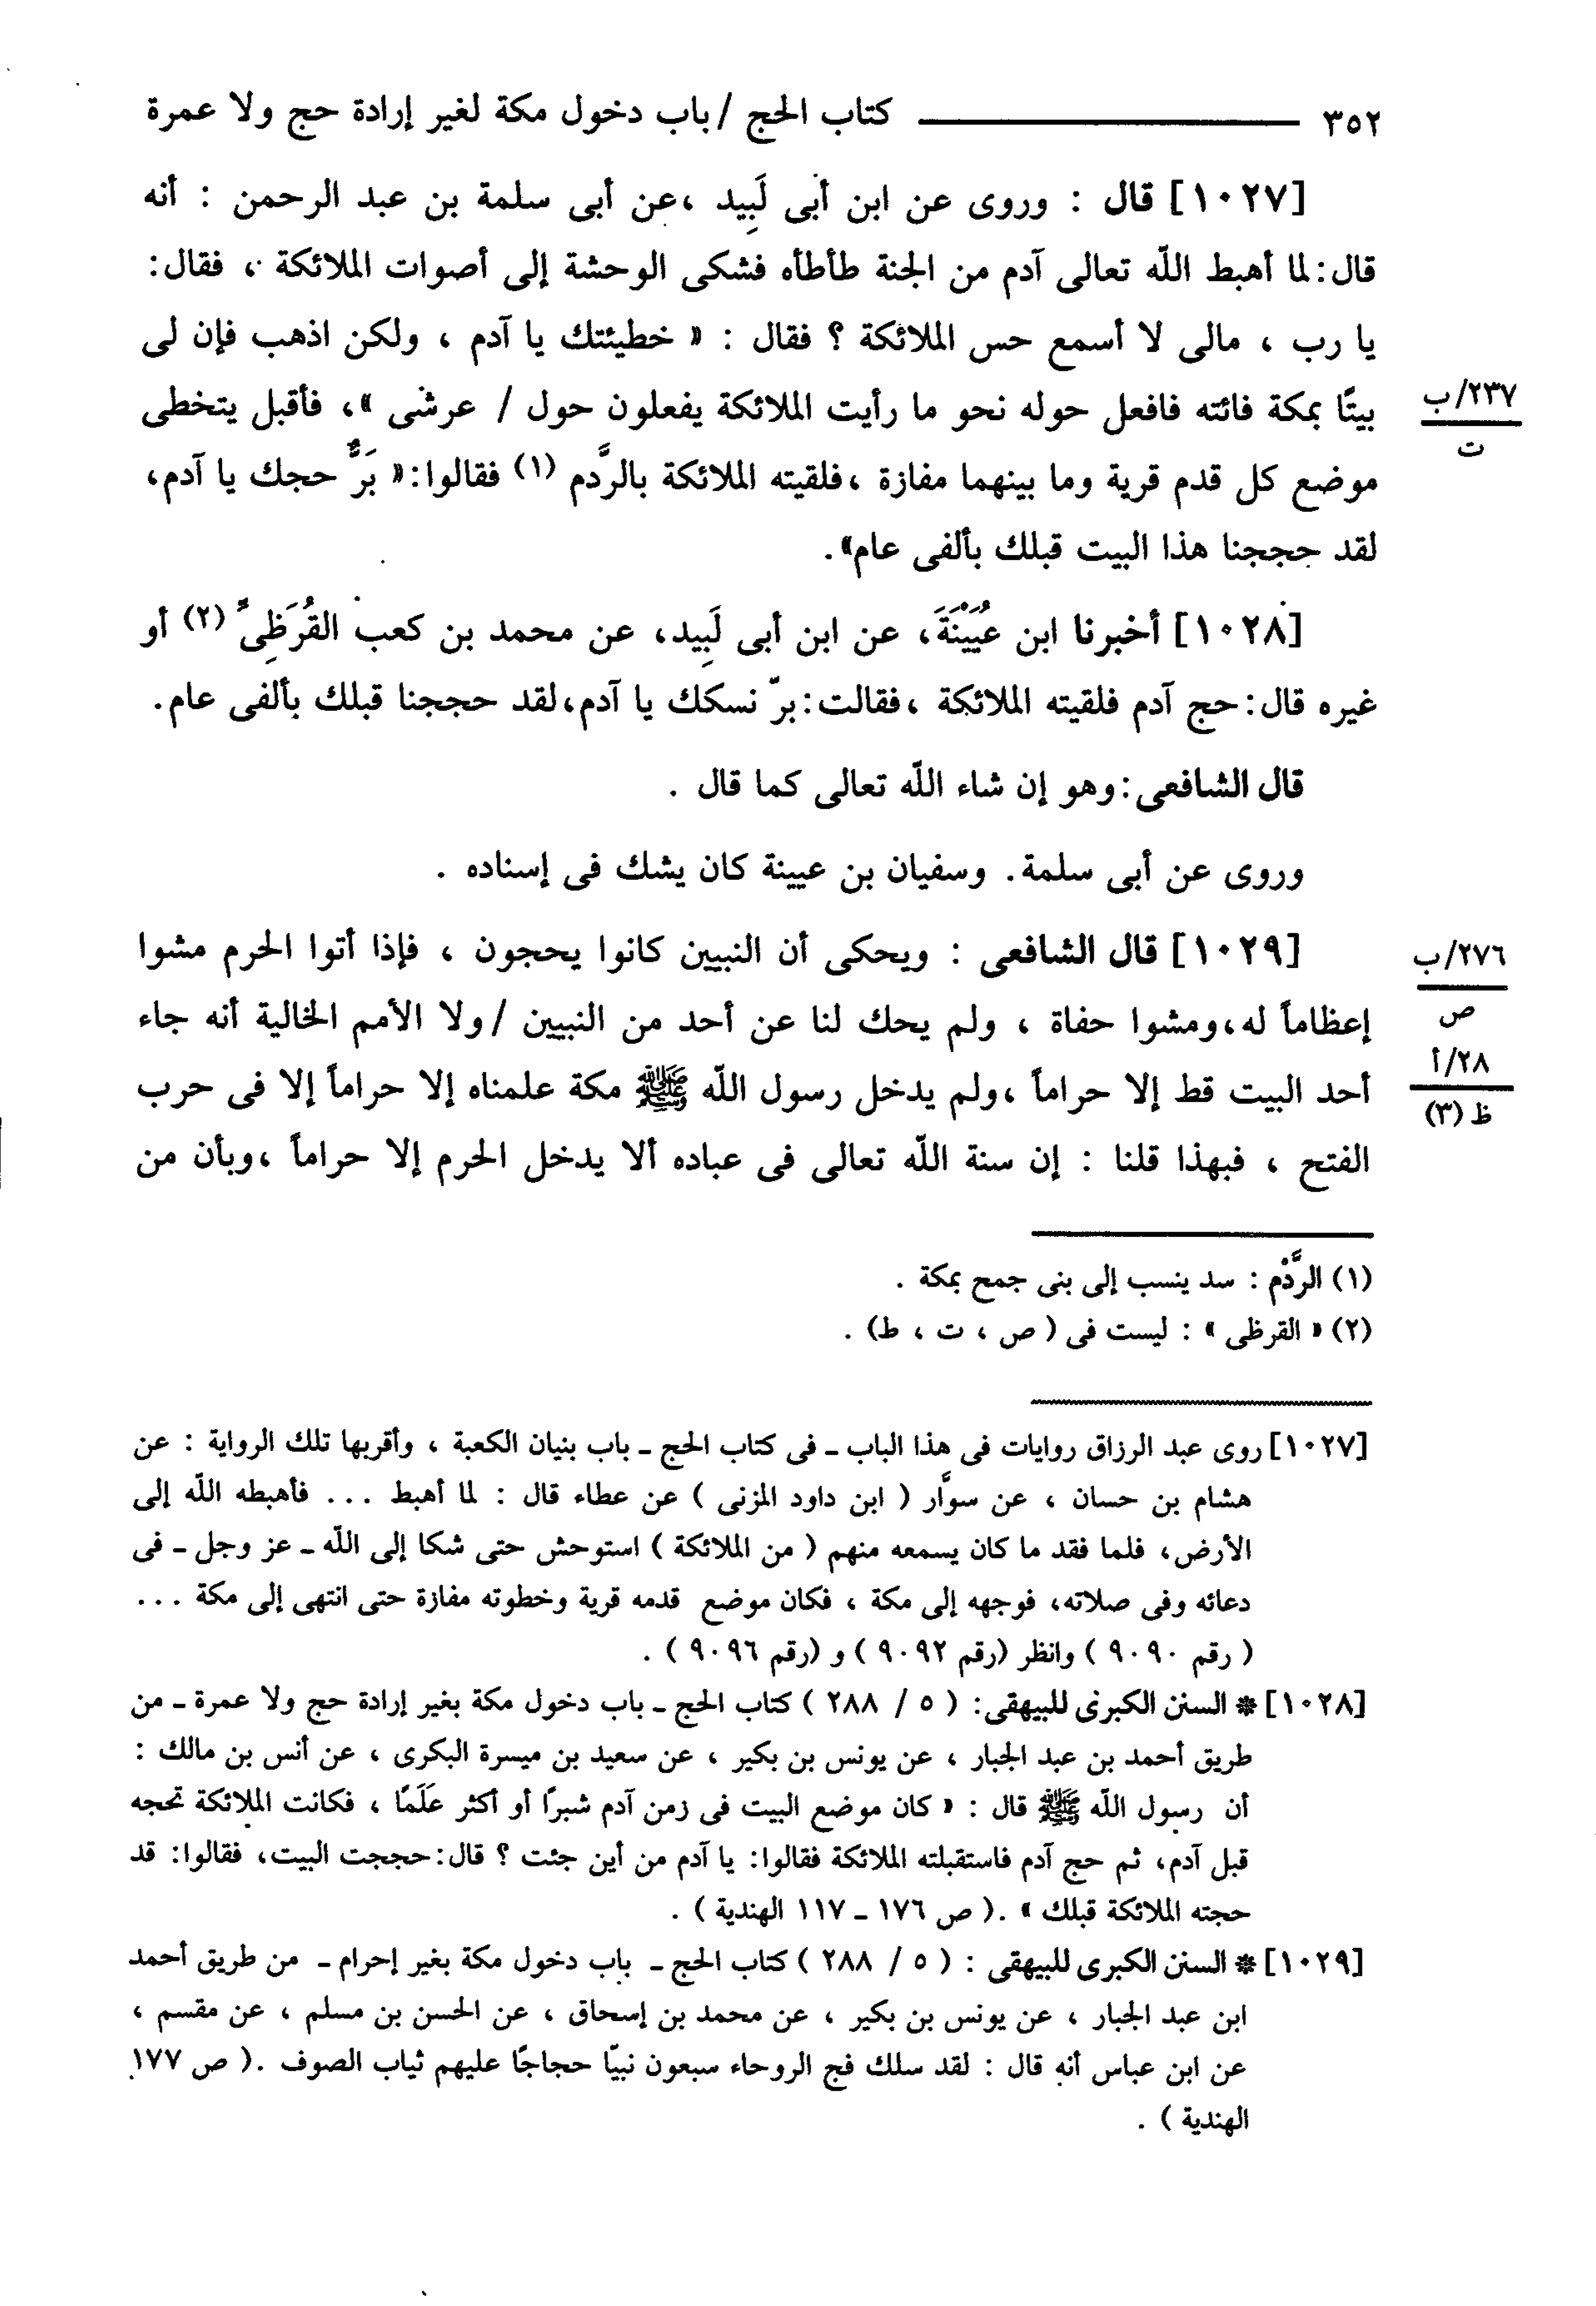 ٣٥٢ ــــــــــــــ كتاب الحج / باب دخول مكة لغير إرادة حج ولا عمرة
[١٠٢٧] قال : وروى عن ابن أبى لَبِيد ، عن أبى سلمة بن عبد الرحمن : أنه
قال : لما أهبط اللّه تعالى آدم من الجنة طأطأه فشكى الوحشة إلى أصوات الملائكة ، فقال :
يا رب ، مالى لا أسمع حس الملائكة ؟ فقال : « خطيئتك يا آدم ، ولكن اذهب فإن لى
بيتًا بمكة فائته فافعل حوله نحو ما رأيت الملائكة يفعلون حول / عرشى » ، فأقبل يتخطى
٢٣٧/ب
ت
موضع كل قدم قرية وما بينهما مفازة ، فلقيته الملائكة بالرَّدم (١) فقالوا : « بَرٌّ حجك يا آدم ،
لقد حججنا هذا البيت قبلك بألفى عام» .
[١٠٢٨] أخبرنا ابن عُيَيْنَةَ ، عن ابن أبى لَبِيد ، عن محمد بن كعب القُرَظِىّ (٢) أو
غيره قال : حج آدم فلقيته الملائكة ، فقالت : برّ نسكك يا آدم ، لقد حججنا قبلك بألفى عام .
قال الشافعى : وهو إن شاء اللّه تعالى كما قال .
وروى عن أبى سلمة . وسفيان بن عيينة كان يشك فى إسناده .
[١٠٢٩] قال الشافعى : ويحكى أن النبيين كانوا يحجون ، فإذا أتوا الحرم مشوا
٢٧٦/ب
ص
إعظاماً له ، ومشوا حفاة ، ولم يحك لنا عن أحد من النبيين / ولا الأمم الخالية أنه جاء
٢٨/أ
ظ (٣)
أحد البيت قط إلا حراماً ، ولم يدخل رسول اللّه ﷺ مكة علمناه إلا حراماً إلا فى حرب
الفتح ، فبهذا قلنا : إن سنة اللّه تعالى فى عباده ألا يدخل الحرم إلا حراماً ، وبأن من
(١) الرَّدْم : سد ينسب إلى بنى جمح بمكة .
(٢) « القرظى » : ليست فى ( ص ، ت ، ط) .
[١٠٢٧] روى عبد الرزاق روايات فى هذا الباب ـ فى كتاب الحج ـ باب بنيان الكعبة ، وأقربها تلك الرواية : عن
هشام بن حسان ، عن سوَّار ( ابن داود المزنى ) عن عطاء قال : لما أهبط ... فأهبطه اللّه إلى
الأرض ، فلما فقد ما كان يسمعه منهم ( من الملائكة ) استوحش حتى شكا إلى اللّه ـ عز وجل ـ فى
دعائه وفى صلاته ، فوجهه إلى مكة ، فكان موضع قدمه قرية وخطوته مفازة حتى انتهى إلى مكة ...
( رقم ٩٠٩٠ ) وانظر (رقم ٩٠٩٢ ) و (رقم ٩٠٩٦ ) .
[١٠٢٨] * السنن الكبرى للبيهقى : ( ٥ / ٢٨٨ ) كتاب الحج ـ باب دخول مكة بغير إرادة حج ولا عمرة ـ من
طريق أحمد بن عبد الجبار ، عن يونس بن بكير ، عن سعيد بن ميسرة البكرى ، عن أنس بن مالك :
أن رسول اللّه ﷺ قال : « كان موضع البيت فى زمن آدم شبرًا أو أكثر عَلَمًا ، فكانت الملائكة تحجه
قبل آدم ، ثم حج آدم فاستقبلته الملائكة فقالوا : يا آدم من أين جئت ؟ قال : حججت البيت ، فقالوا : قد
حجته الملائكة قبلك » . ( ص ١٧٦ ـ ١١٧ الهندية ) .
[١٠٢٩] * السنن الكبرى للبيهقى : ( ٥ / ٢٨٨ ) كتاب الحج ـ باب دخول مكة بغير إحرام ـ من طريق أحمد
ابن عبد الجبار ، عن يونس بن بكير ، عن محمد بن إسحاق ، عن الحسن بن مسلم ، عن مقسم ،
عن ابن عباس أنه قال : لقد سلك فج الروحاء سبعون نبيّا حجاجًا عليهم ثياب الصوف . ( ص ١٧٧
الهندية ) .